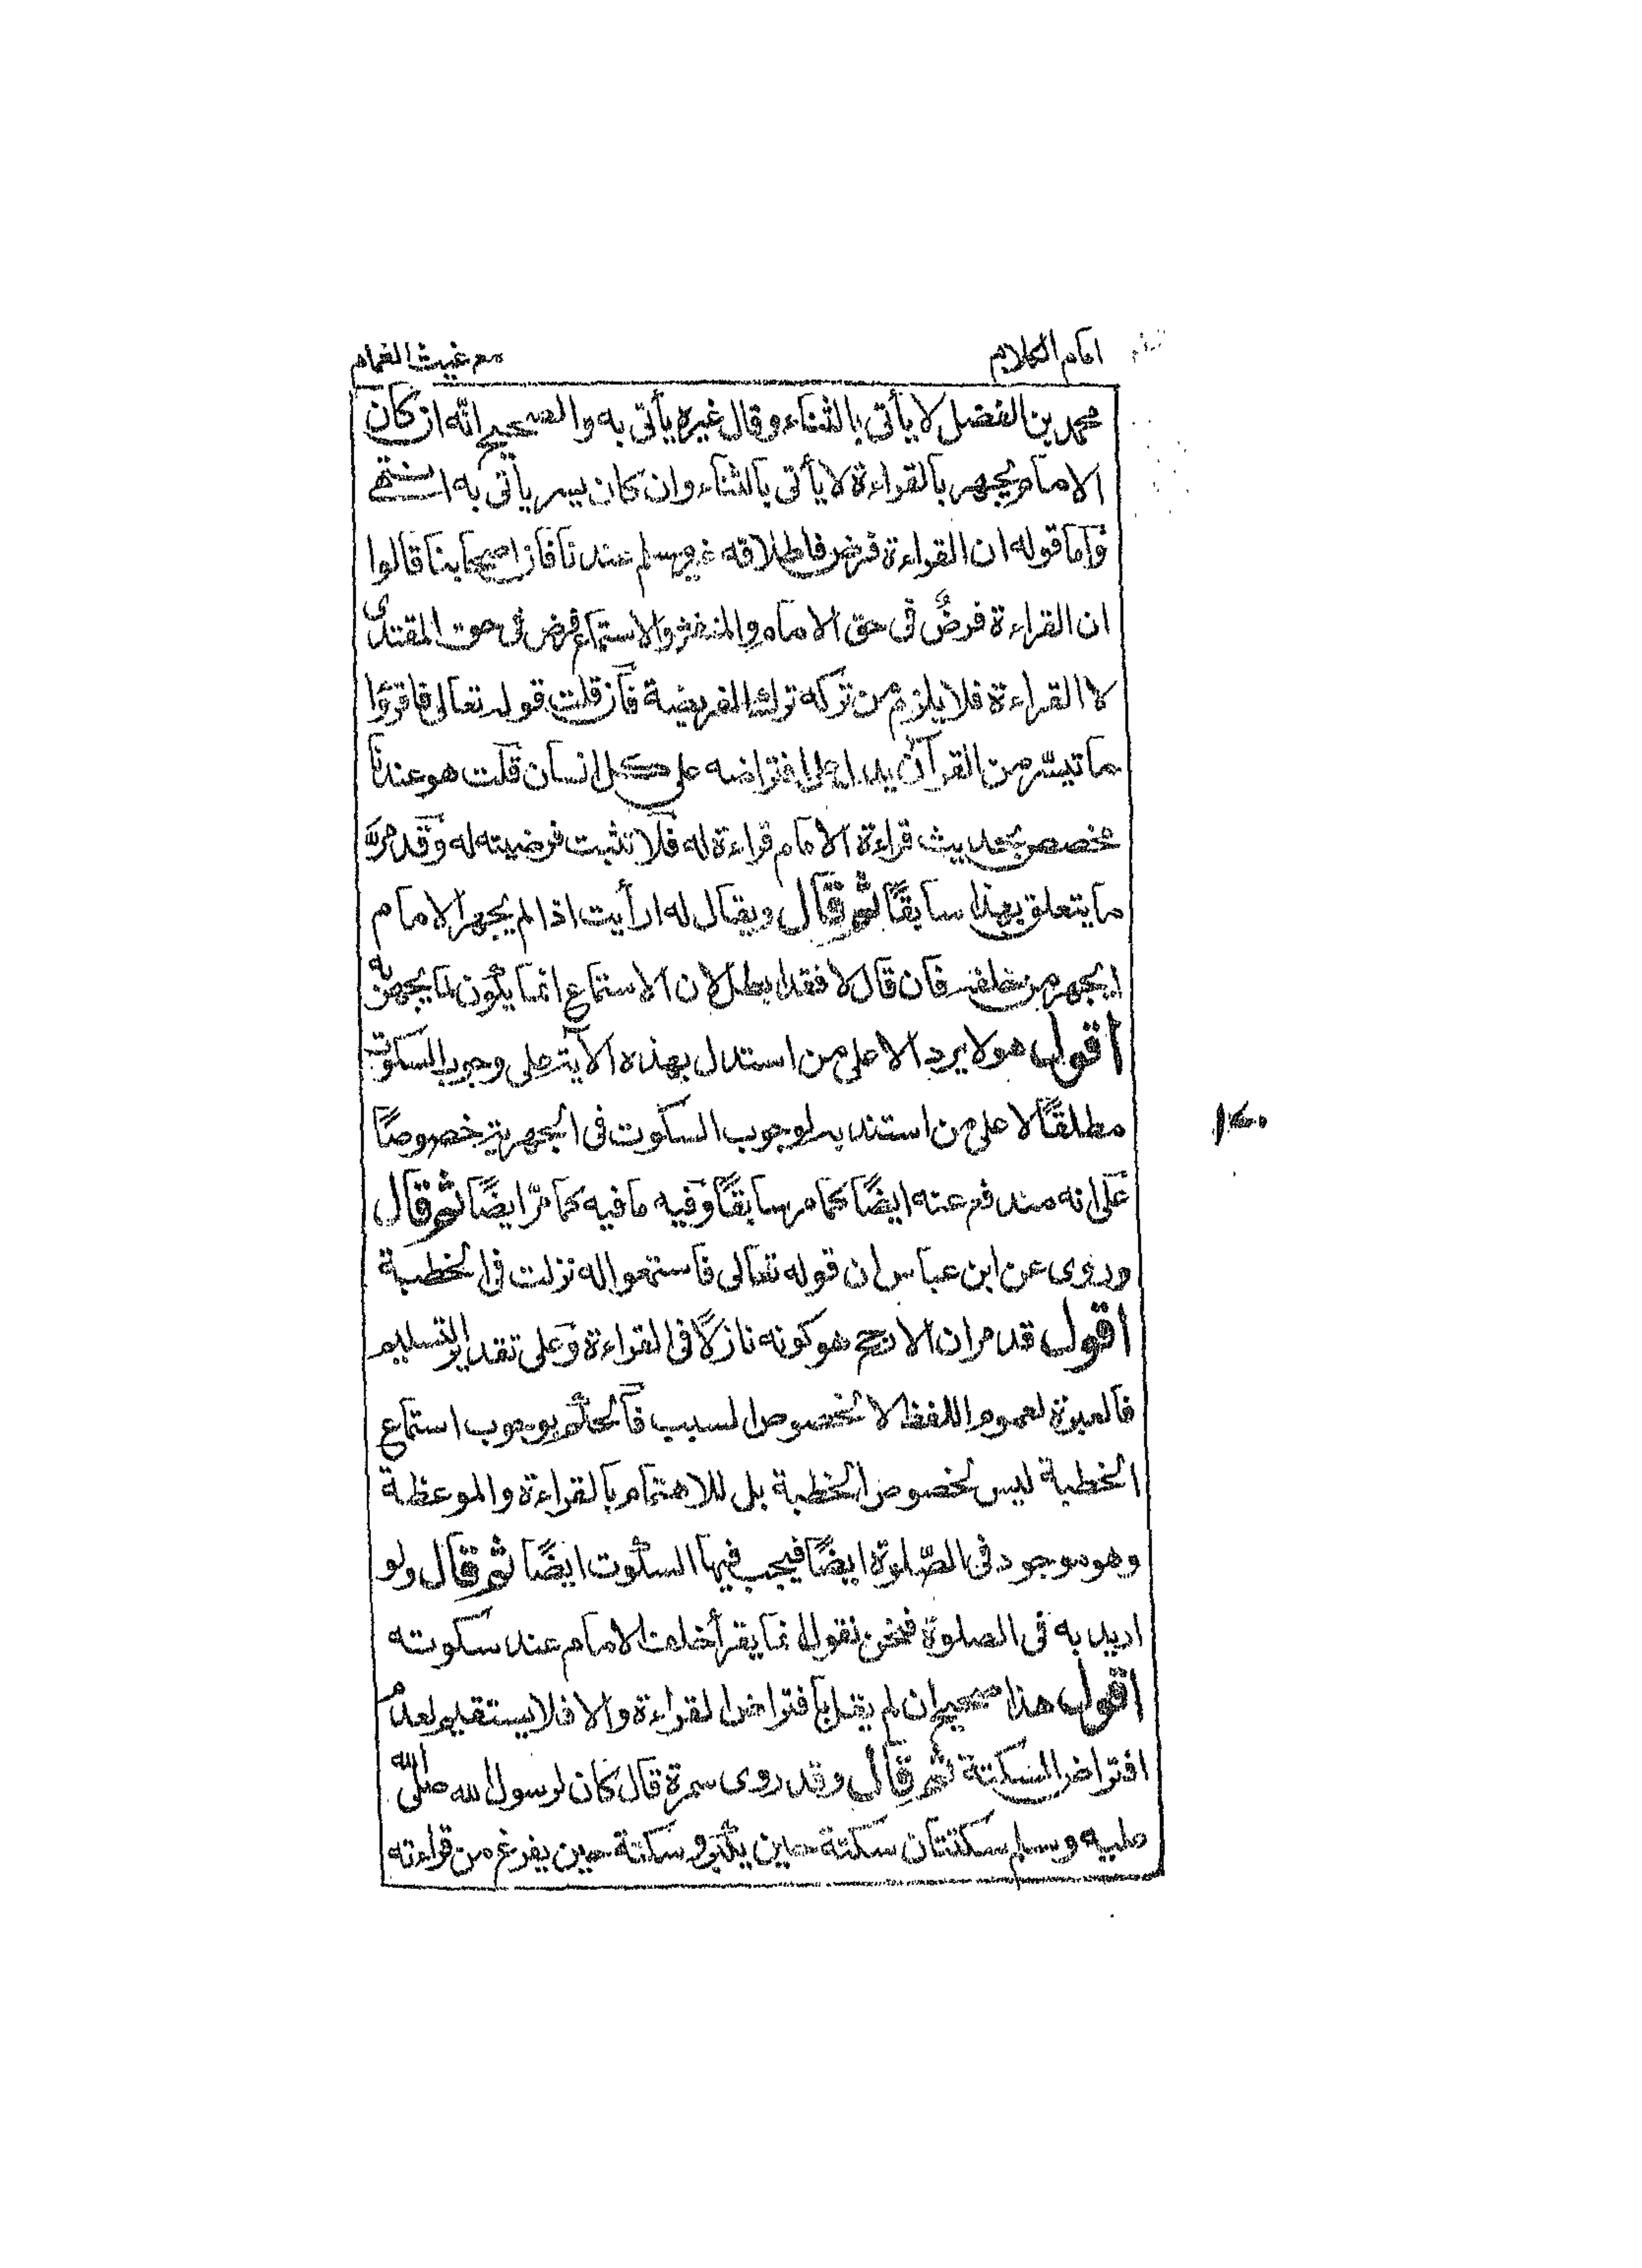 امام الكلام
مع غيث الغمام
محمد بن الفضل لا يأتى بالثناء وقال غيره يأتى به والصحيح انه ان كان
الامام يجهر بالقراءة لا يأتى بالثناء وان كان يسر يأتى به انتهى
وآما قوله ان القراءة فرض فاطلاقه غير مسلم عندنا فان اصحابنا قالوا
ان القراءة فرضٌ فى حق الامام والمنفرد والاستماع فرض فى حق المقتدى
لا القراءة فلا يلزم من تركه ترك الفريضة فآن قلت قوله تعالى فاقرؤا
ما تيسّر من القرآن يدل على افتراضه على كل انسان قلت هو عندنا
مخصص بحديث قراءة الامام قراءة له فلا تثبت فرضيته له وقد مرّ
ما يتعلق بهذا سابقًا ثم قال ويقال له ارأيت اذا لم يجهر الامام
ايجهر من خلفه فان قال لا فقد ابطل لان الاستماع انما يكون لما يجهر به
اقول هو لا يرد الا على من استدل بهذه الآية على وجوب السكوت
مطلقًا لا على من استند به لوجوب السكوت فى الجهرية خصوصًا
على انه مندفع عنه ايضًا كما مر سابقًا وفيه ما فيه كما مرّ ايضًا ثم قال
وروى عن ابن عباس ان قوله تعالى فاستمعوا له نزلت فى الخطبة
اقول قد مر ان الارجح هو كونه نازلًا فى القراءة وعلى تقدير التسليم
فالعبرة لعموم اللفظ لا لخصوص السبب فآلحكم بوجوب استماع
الخطبة ليس لخصوص الخطبة بل للاهتمام بالقراءة والموعظة
وهو موجود فى الصّلوة ايضًا فيجب فيها السكوت ايضًا ثم قال ولو
اريد به فى الصلوة فنحن نقول انما يقرأ خلف الامام عند سكوته
اقول هذا صحيح ان لم يقل بافتراض القراءة والا فلا يستقيم لعدم
افتراض السكتة ثم قال وقد روى سمرة قال كان لرسول الله صلى الله
عليه وسلم سكتتان سكتة حين يكبر وسكتة حين يفرغ من قراءته